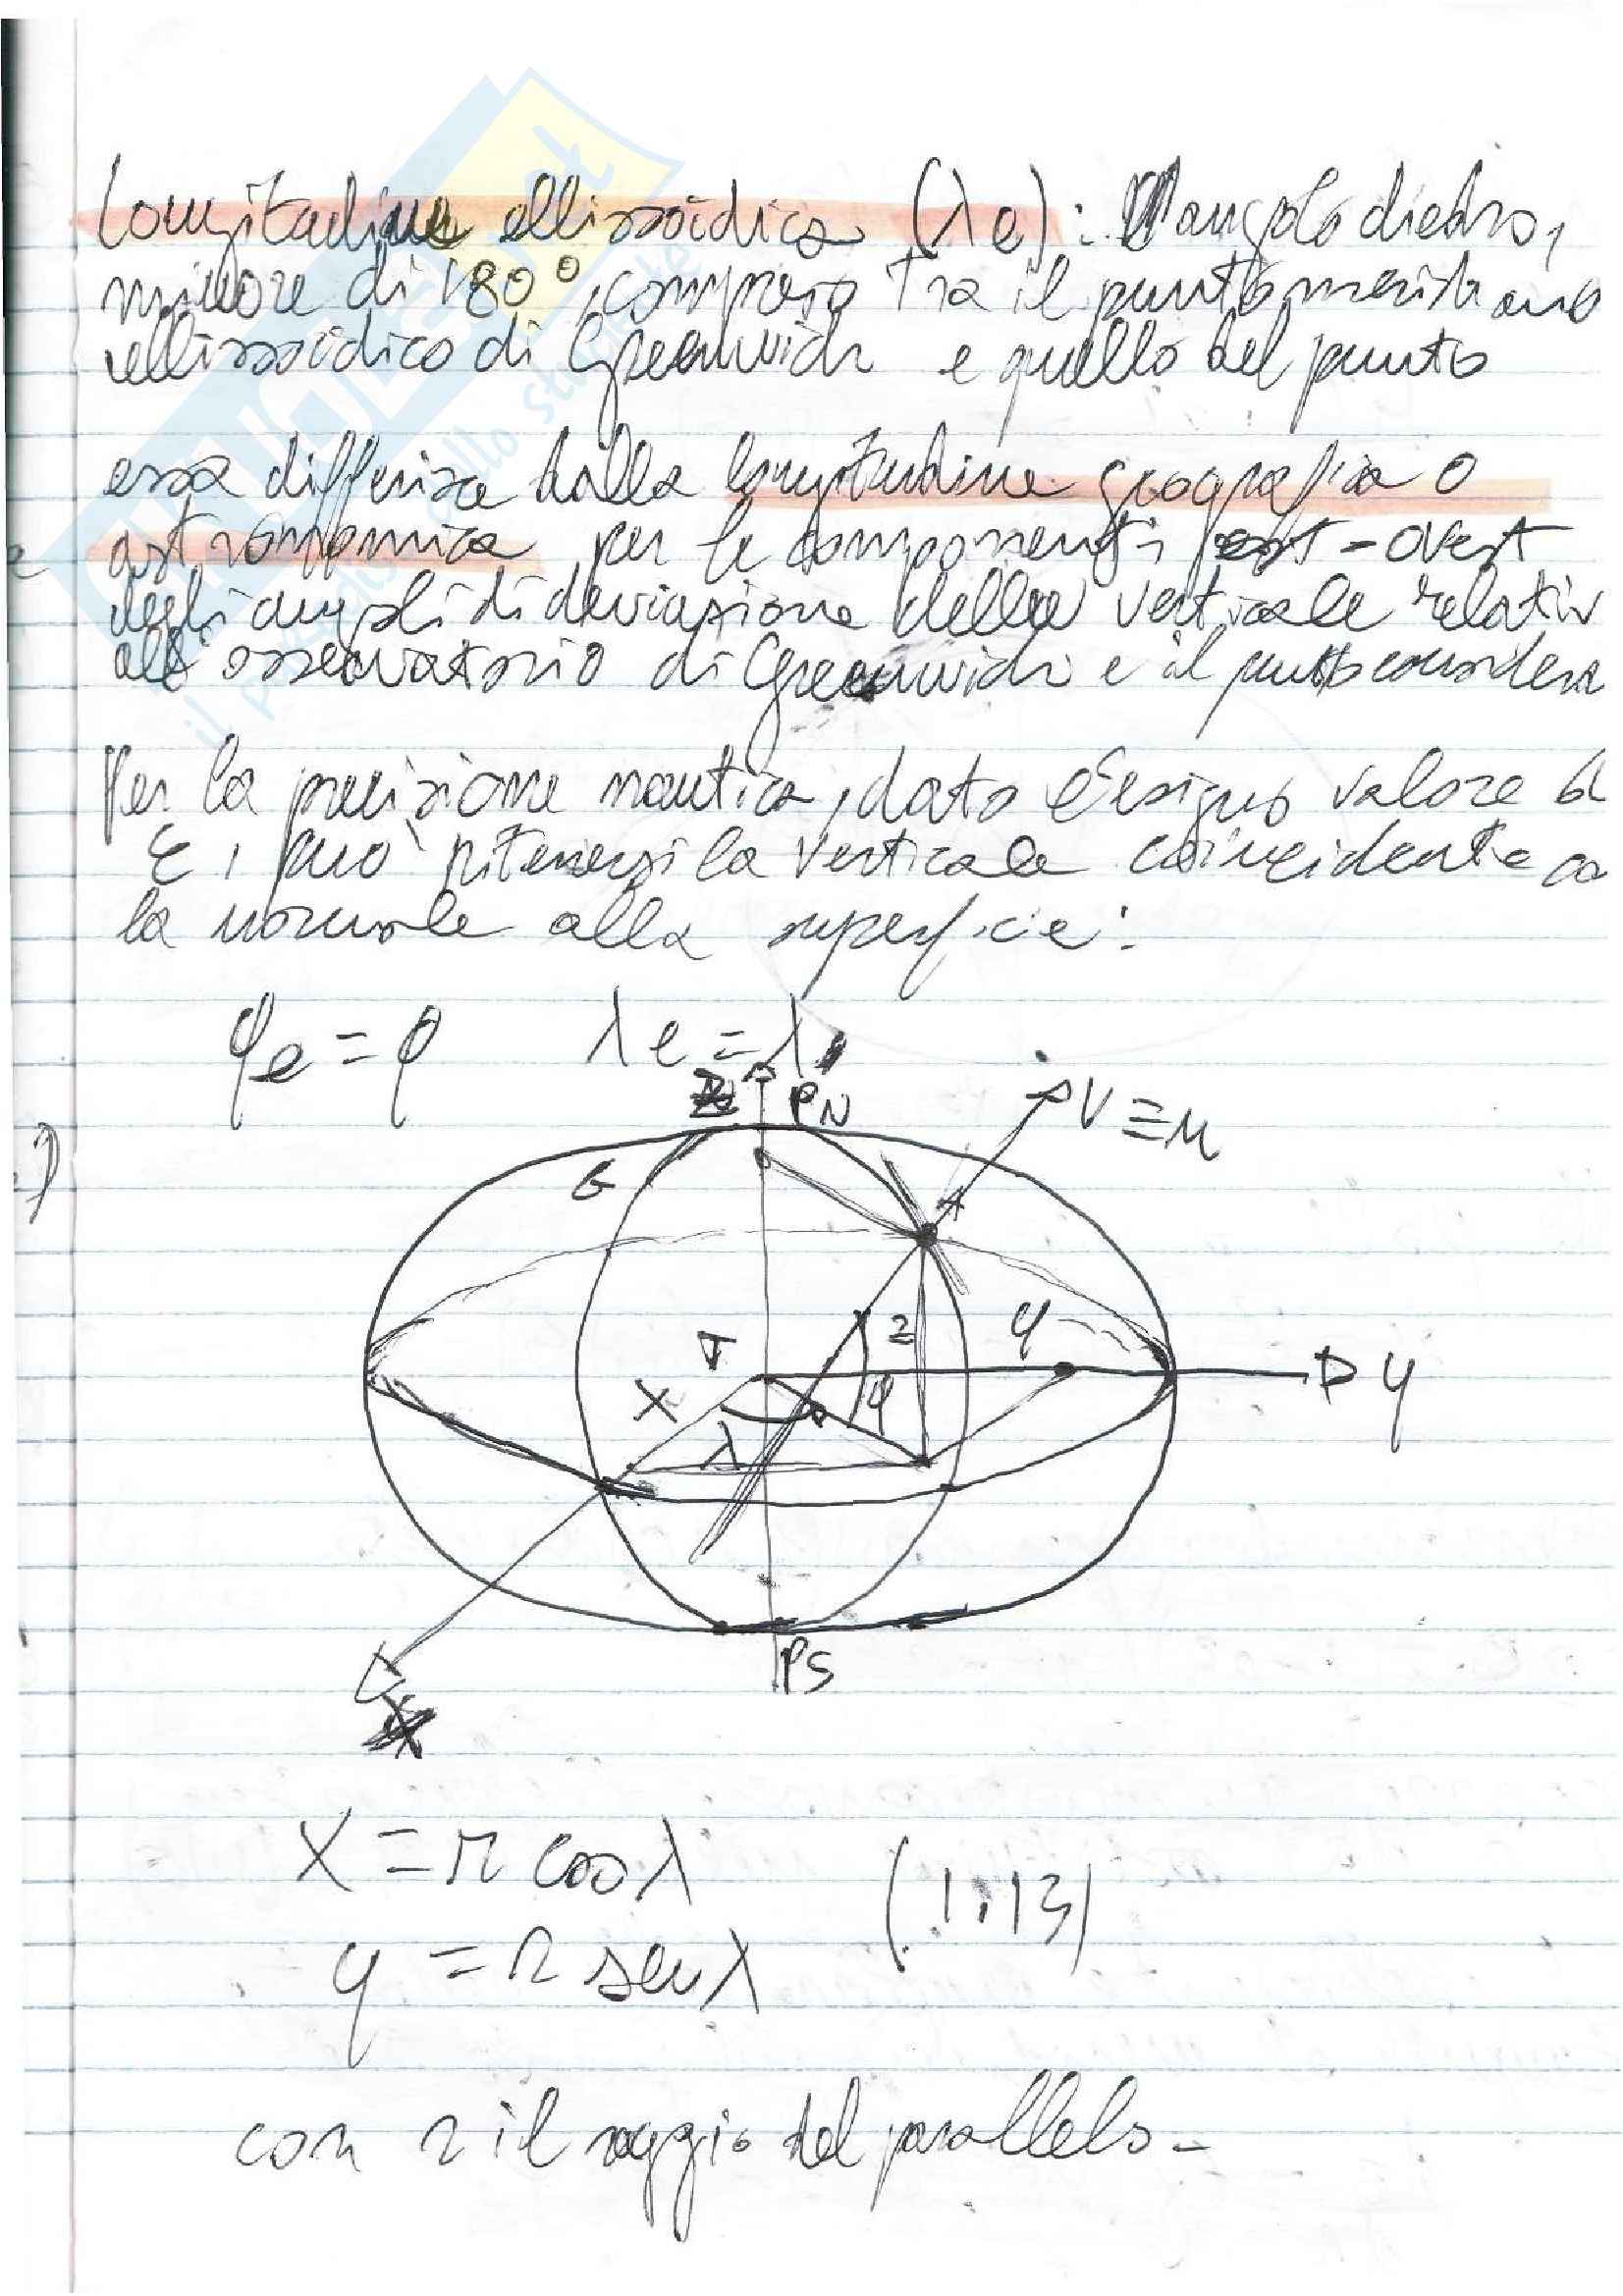 Longitudine ellissoidica (λe): angolo diedro,
minore di 180°, compreso tra il punto meridiano
ellissoidico di Greenwich e quello del punto
essa differisce dalla longitudine geografica o
astronomica per le componenti est-ovest
degli angoli di deviazione della verticale relativ
all'osservatorio di Greenwich e il punto considera
Per la precisione nautica, dato l'esiguo valore d
ε, può ritenersi la verticale coincidente co
la normale alla superficie:
φe = φ λe = λ
PN
V ≡ n
G
A
T
z
y
y
X
φ
λ
PS
X
X = r cos λ
y = r sen λ
(1.13)
con r il raggio del parallelo-